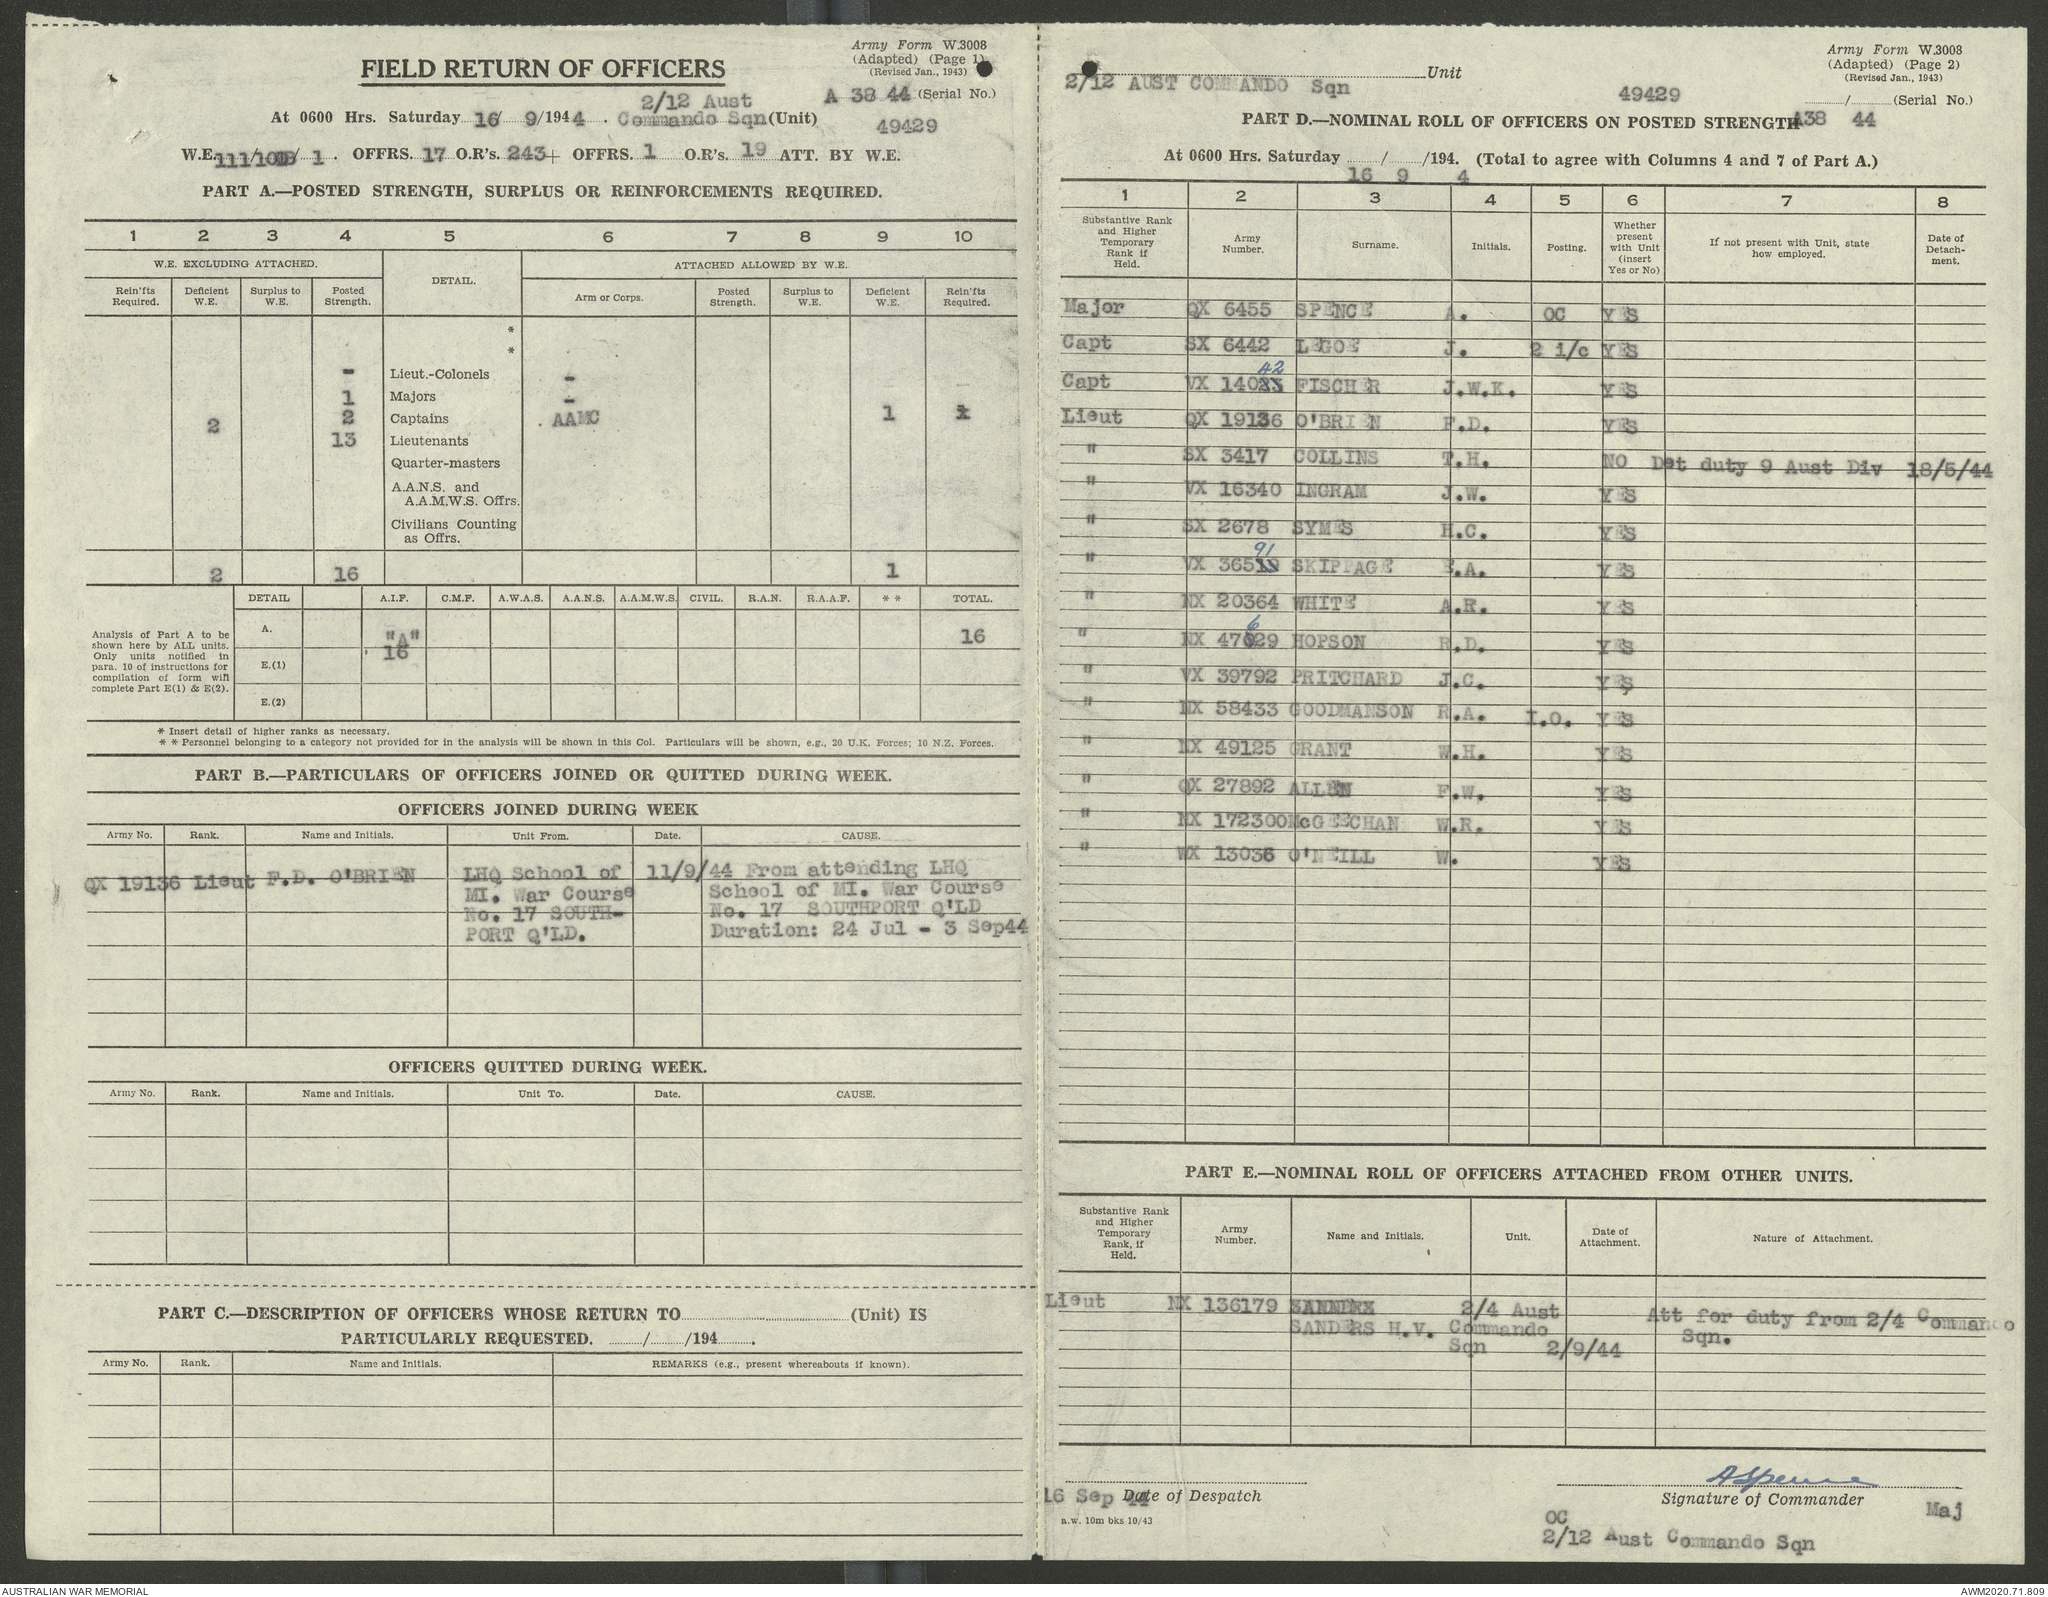 Army Form W.3008
(Adapted) (Page 1)
(Revised Jan., 1943)
FIELD RETURN OF OFFICERS
A 38 44 (Serial No.)
2/12 Aust
At 0600 Hrs. Saturday 16/ 9/1944. Commando Sqn (Unit)
49429
W.E. / / 1. OFFRS. 17 O.R's. 243+ OFFRS. 1 O.R's. 19 ATT. BY W.E.
PART A.—POSTED STRENGTH, SURPLUS OR REINFORCEMENTS REQUIRED.
1 2 3 4 5 6 7 8 9 10
W.E. EXCLUDING ATTACHED. DETAIL. ATTACHED ALLOWED BY W.E.
Rein'fts Required. Deficient W.E. Surplus to W.E. Posted Strength. Arm or Corps. Posted Strength. Surplus to W.E. Deficient W.E. Rein'fts Required.
*
*
- Lieut.-Colonels -
1 Majors -
2 2 Captains AAMC 1
13 Lieutenants
Quarter-masters
A.A.N.S. and
A.A.M.W.S. Offrs.
Civilians Counting
as Offrs.
2 16 1
DETAIL A.I.F. C.M.F. A.W.A.S. A.A.N.S. A.A.M.W.S. CIVIL. R.A.N. R.A.A.F. * * TOTAL.
Analysis of Part A to be
shown here by ALL units.
Only units notified in
para. 10 of instructions for
compilation of form will
complete Part E(1) & E(2).
A. "A" 16
16
E.(1)
E.(2)
* Insert detail of higher ranks as necessary.
* * Personnel belonging to a category not provided for in the analysis will be shown in this Col. Particulars will be shown, e.g., 20 U.K. Forces; 10 N.Z. Forces.
PART B.—PARTICULARS OF OFFICERS JOINED OR QUITTED DURING WEEK.
OFFICERS JOINED DURING WEEK
Army No. Rank. Name and Initials. Unit From. Date. CAUSE.
QX 19136 Lieut F.D. O'BRIEN LHQ School of 11/9/44 From attending LHQ
MI. War Course School of MI. War Course
No. 17 SOUTH- No. 17 SOUTHPORT Q'LD
PORT Q'LD. Duration: 24 Jul - 3 Sep44
OFFICERS QUITTED DURING WEEK.
Army No. Rank. Name and Initials. Unit To. Date. CAUSE.
PART C.—DESCRIPTION OF OFFICERS WHOSE RETURN TO (Unit) IS
PARTICULARLY REQUESTED. / /194 .
Army No. Rank. Name and Initials. REMARKS (e.g., present whereabouts if known).
Army Form W.3008
(Adapted) (Page 2)
(Revised Jan., 1943)
Unit
2/12 AUST COMMANDO Sqn
49429
/ (Serial No.)
PART D.—NOMINAL ROLL OF OFFICERS ON POSTED STRENGTH
A38 44
At 0600 Hrs. Saturday / /194. (Total to agree with Columns 4 and 7 of Part A.)
16 9 4
1 2 3 4 5 6 7 8
Substantive Rank and Higher Temporary Rank if Held. Army Number. Surname. Initials. Posting. Whether present with Unit (insert Yes or No) If not present with Unit, state how employed. Date of Detach-ment.
Major QX 6455 SPENCE A. OC YES
Capt SX 6442 LEGOE J. 2 i/c YES
42
Capt VX 140 FISCHER J.W.K. YES
Lieut QX 19136 O'BRIEN F.D. YES
" SX 3417 COLLINS T.H. NO Det duty 9 Aust Div 18/5/44
" VX 16340 INGRAM J.W. YES
" SX 2678 SYMES H.C. YES
91
" VX 365 SKIPPAGE E.A. YES
" NX 20364 WHITE A.R. YES
6
" NX 47029 HOPSON R.D. YES
" VX 39792 PRITCHARD J.C. YES
" NX 58433 GOODMANSON R.A. I.O. YES
" NX 49125 GRANT W.H. YES
" QX 27892 ALLEN F.W. YES
" NX 172300 McGEECHAN W.R. YES
" WX 13036 O'NEILL W. YES
PART E.—NOMINAL ROLL OF OFFICERS ATTACHED FROM OTHER UNITS.
Substantive Rank and Higher Temporary Rank, if Held. Army Number. Name and Initials. Unit. Date of Attachment. Nature of Attachment.
Lieut NX 136179 2/4 Aust Att for duty from 2/4 Commando
SANDERS H.V. Commando Sqn.
Sqn 2/9/44
A Spence
16 Sep 44 Date of Despatch
Signature of Commander Maj
a.w. 10m bks 10/43
OC
2/12 Aust Commando Sqn
AUSTRALIAN WAR MEMORIAL
AWM2020.71.809